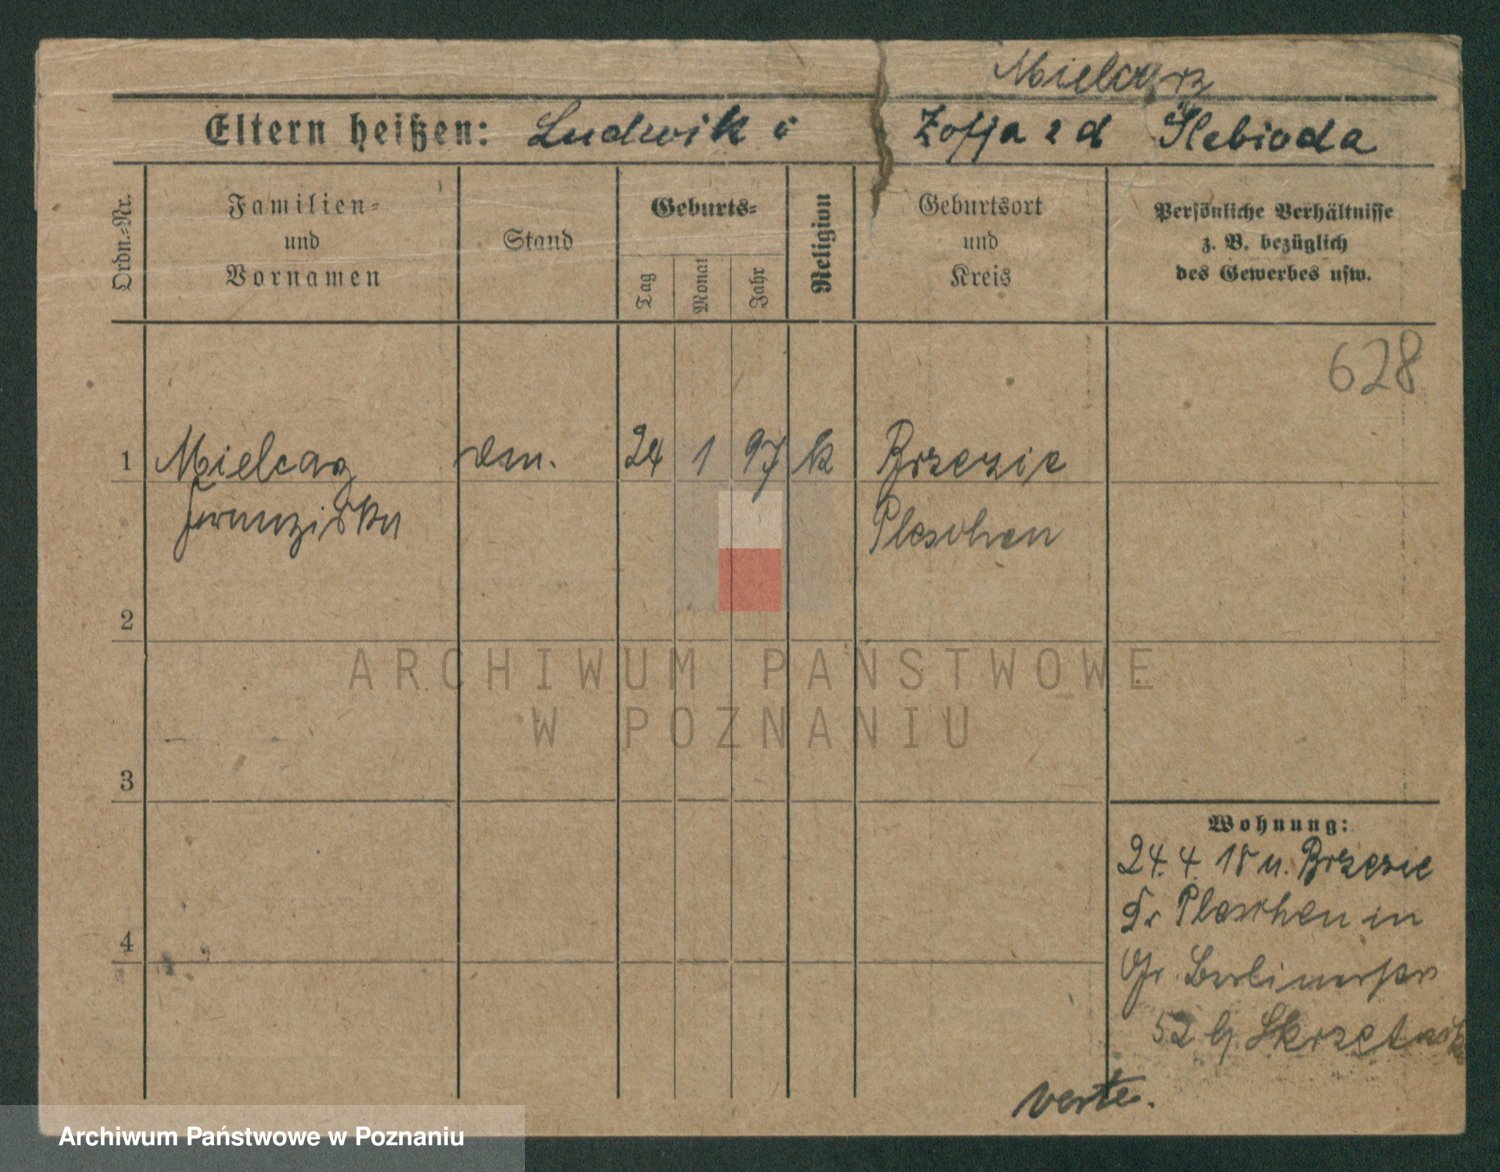 Mielcarz
Eltern heißen: Ludwik i Zofja z d Slebioda
Ordn.-Nr.
Familien-
und
Vornamen
Stand
Geburts-
Tag
Monat
Jahr
Religion
Geburtsort
und
Kreis
Persönliche Verhältnisse
z. B. bezüglich
des Gewerbes usw.
628
1 Mielcarz
Franziska
24 1 97 k
Brzezie
Pleschen
2
3
4
Wohnung:
24. 4. 18 u. Brzezie
Kr Pleschen in
52
verte.
ARCHIWUM PAŃSTWOWE
W POZNANIU
Archiwum Państwowe w Poznaniu